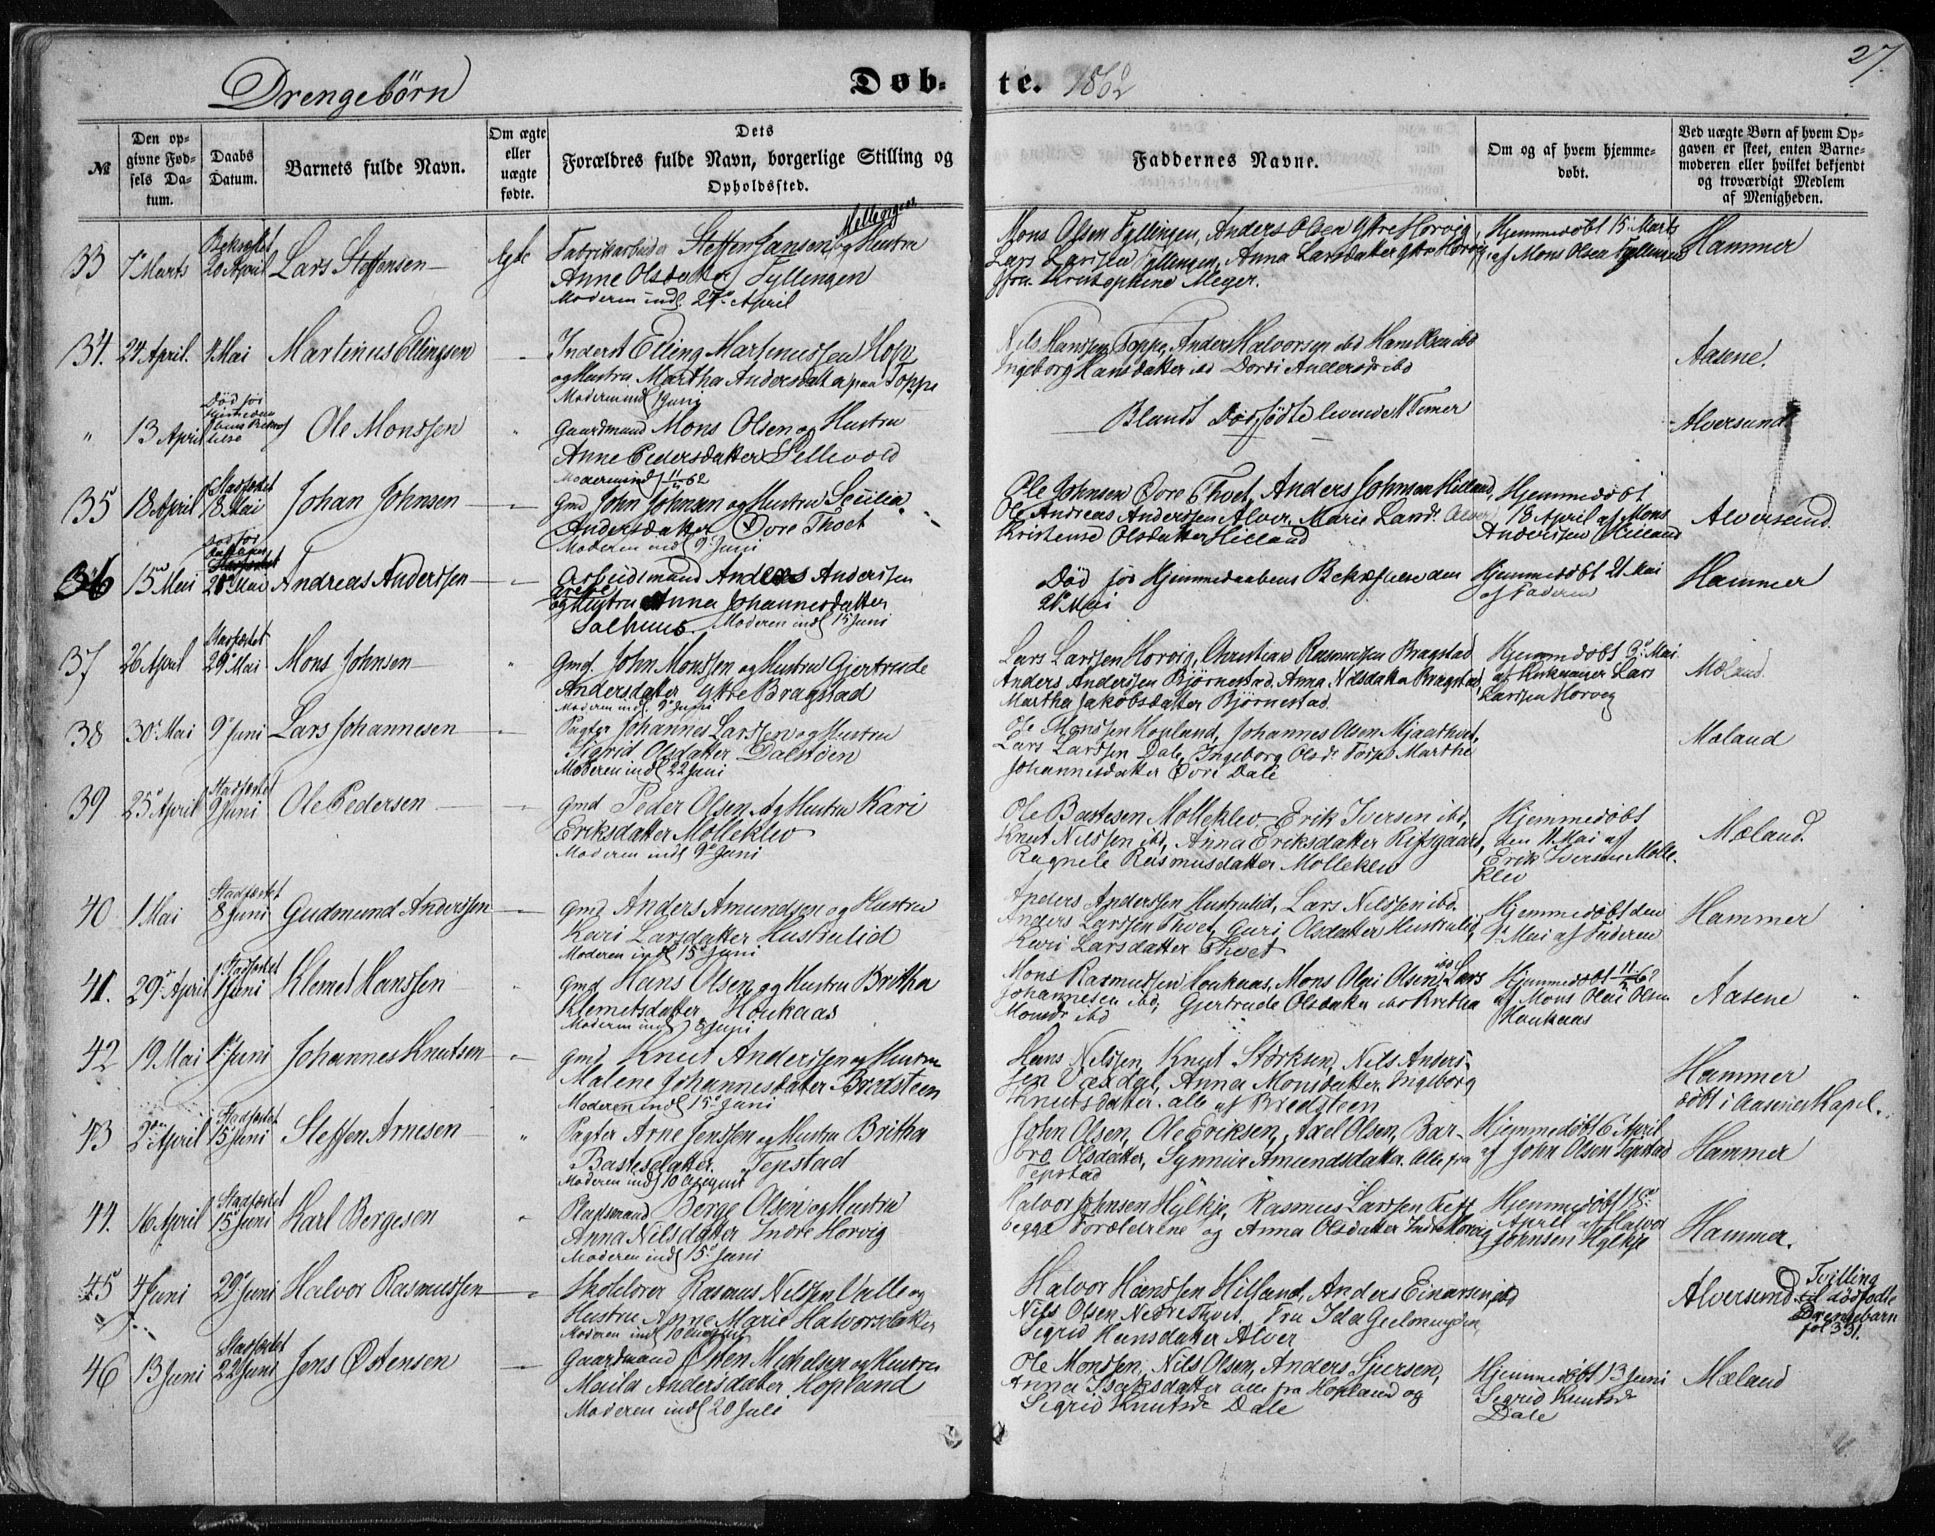 27.
Drengebørn
Døb-
te. 1862
№
Den op-
givne Fød-
sels Da-
tum.
Daabs
Datum.
Barnets fulde Navn.
Om ægte
eller
uægte
fødte.
Dets
Forældres fulde Navn, borgerlige Stilling og
Opholdssted.
Faddernes Navne.
Om og af hvem hjemme-
døbt.
Ved uægte Børn af hvem Op-
gaven er skeet, enten Barne-
moderen eller hvilket bekjendt
og troværdigt Medlem
af Menigheden.
33
7 Marts
20 April
Lars Steffensen
Ægte
Fabrikarbeider Steffen Jansen og Hustru
Anne Olsdatter Tyllingen
Moderen indl. 27 April
Mons Olsen Tyllingen, Anders Olsen Ytre Horvig,
Lars Larsen Tyllingen, Anna Larsdatter Ytre Horvig
Meyer.
Hjemmedøbt 15 Marts
af Mons Olsen Tyllingen
Hammer
34.
24 April.
Mai
Martinus Ellingsen
Inderst Elling Martinussen Hop
og Hustru Martha Andersdatter paa Toppe
Moderen indl Juni
Nils Hansen Toppe, Anders Halvorsen ibd Hans Olsen ibd
Ingeborg Hansdatter ibd Dordi Andersdr ibd
Aasene.
"
13 April
Død før
Ole Monssen
Gaardmand Mons Olsen og Hustru
Anne Pedersdatter Sellevold
Moderen indl 11/5 62
Blandt Dødfødte levende N Femer
Alversund
35
18 April
Stadfæstet
18 Mai
Johan Johnsen
Gmd John Johnsen og Hustru Secilia
Andersdatter Øvre Thvet
Moderen indl 9 Juni
Ole Johnsen Øvre Thvet, Anders Johnsen Hilland,
Ole Andreas Anderssen Alver, Marie Larsd. Alver
Kristense Olsdatter Hilland
Hjemmedøbt
18 April af Mons
Anderssen Hilland
Alversund.
36
15 Mai
Andreas Anderssen
Arbeidsmand Anders Anderssen
og Hustru Anna Johannesdatter
Salhuus. Moderen indl 15 Juni
Død før Hjemmedaabens Bekræftelse den
21 Mai
Hjemmedøbt 21 Mai
af Faderen
Hammer
37
26 April
Stadfæstet
29 Mai
Mons Johnsen
Gmd. John Monssen og Hustru Gjertrude
Andersdatter Ytre Bragstad
Moderen indl. 9 Juni
Lars Larssen Horvig, Christian Rasmussen Bragstad
Anders Anderssen Bjørnestad, Anna Nilsdatter Bragstad,
Martha Jakobsdatter Bjørnestad
Hjemmedøbt Mai
Lars
Larssen Horvig
Mæland
38
30 Mai
9 Juni
Lars Johannesen
Pagter Johannes Larssen og Hustru
Sigrid Olsdatter Dalstøen
Moderen indl 22 Juni
Ole Monssen Hopland, Johannes Olsen Mjaathvet,
Lars Larssen Dale, Ingeborg Olsdr Torpe Marthe
Johannesdatter Øvre Dale
Mæland
39
25 April
Stadfæstet
9 Juni
Ole Pedersen
Gmd Peder Olsen og Hustru Kari
Eriksdatter Mollekleo
Moderen indl 9 Juni
Ole Bastesen Mollekleo, Erik Iversen ibd,
Knut Nilssen ibd, Anna Eriksdatter
Ragnele Rasmusdatter Mollekleo
Hjemmedøbt
den 11 Mai af
Erik Iversen Molle-
kleo
Mæland.
40
1 Mai
Stadfæstet
8 Juni
Gudmund Anderssen
Gmd Anders Amundsen og Hustru
Kari Larsdatter Hustrulid
Moderen indl 15 Juni
Anders Anderssen Hustrulid, Lars Nilssen ibd.
Anders Larssen Thvet, Guri Olsdatter Hustrulid,
Kari Larsdatter Thvet
Hjemmedøbt den
Mai af Faderen
Hammer
41.
29 April
Stadfæstet
1 Juni
Klemet Hanssen
Gmd Hans Olsen og Hustru Britha
Klemetsdatter Houkaas
Moderen indl 8 Juni
Mons Rasmussen Houkaas, Mons Olai Olsen ibd Lars
Johannesen ibd, Gjertrude Olsdatter ibd Britha
Monsdr ibd
Hjemmedøbt
af Mons Olai Olsen
Houkaas
Aasene
42
19 Mai
Juni
Johannes Knutsen
Gmd Knut Anderssen og Hustru
Malene Johannesdatter Bredsteen
Moderen indl 15 Juni
Hans Nilssen, Knut Størksen, Nils Anders-
sen Vaxdal, Anna Monsdatter, Ingeborg
Knutsdatter. alle af Bredsteen
Hammer
døbt i Aasene Kapel.
43
2den April
Stadfæstet
15 Juni
Steffen Arnesen
Pagter Arne Jenssen og Hustru Britha
Bastesdatter. Tepstad
Moderen indl 10 August
John Olsen, Ole Eriksen, Axel Olsen, Bar-
bro Olsdatter, Synnive Amundsdatter. Alle fra
Tepstad
Hjemmedøbt 6 April
af John Olsen Tepstad
Hammer
44.
16 April
Stadfæstet
15 Juni
Karl Bergesen
Pladsmand Berge Olsen og Hustru
Anna Nilsdatter Indre Horvig
Moderen indl 15 Juni
Halvor Johnsen Hylkje, Rasmus Larssen
begge Forældrene og Anna Olsdatter Indre Horvig
Hjemmedøbt 18
April af Halvor
Johnsen Hylkje
Hammer.
45
4 Juni
29 Juni
Halvor Rasmussen
Skolelærer Rasmus Nilssen Valle og
Hustru Anne Marie Halvorsdatter
Moderen indl 10 August
Halvor Hanssen Hilland, Anders Einarsen ibd
Nils Olsen Nedre Thvet. Fru Ida Geelmuyden,
Sigrid Hansdatter Alver
Alversund
Tvilling
til dødfødte
Drengebarn
fol 331.
46
13 Juni
Stadfæstet
22 Juni
Jens Østensen
Gaardmand Østen Mikkelsen og Hustru
Andersdatter Hopland
Moderen indl 20 Juli
Ole Monssen, Nils Olsen, Anders Sjursen,
Anna Isaksdatter alle fra Hopland og
Sigrid Knutsdr Dale
Hjemmedøbt 13 Juni
Sigrid Knutsdr
Dale
Mæland